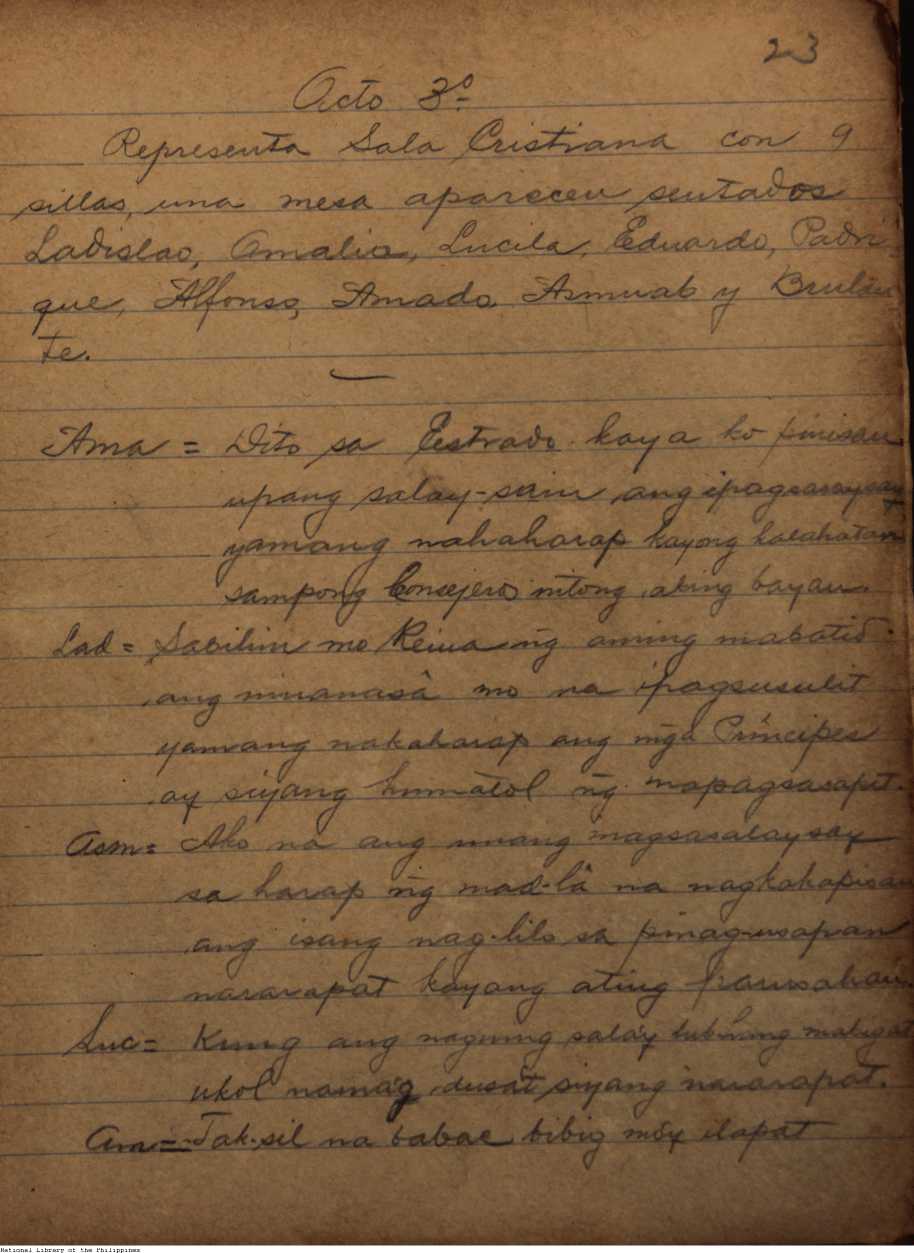 23
Acto 3º
Representa Sala Cristiana con 9
sillas, una mesa aparecen sentados
Ladislao, Amalia, Lucila, Eduardo, Padri
que, Alfonso, Amado, Asmuab y Brulan
te.
Ama = Dito sa Estrado kaya ko pinisan
upang salay-sain ang ipagsasaysay
yamang nahaharap kayong kalahatan
sampong Consejeros nitong aking bayan.
Lad = Sabihin mo Reina ng̃ aming mabatid
ang minanasâ mo na ipagsusulit
yamang nakaharap ang mg̃a Príncipes
ay siyang hahatol ng̃ mapagsasapit.
Asm = Ako na ang unang magsasalaysay
sa harap ng̃ mad-lâ na nagkakapisan
ang isang nag-lilo sa pinag-usapan
nararapat kayang ating parusahan.
Luc = Kung ang naguing sala'y lubhang mabigat
ukol nama'g dusa't siyang nararapat.
Am = Tak-sil na babae bibig mo'y ilapat
National Library of the Philippines